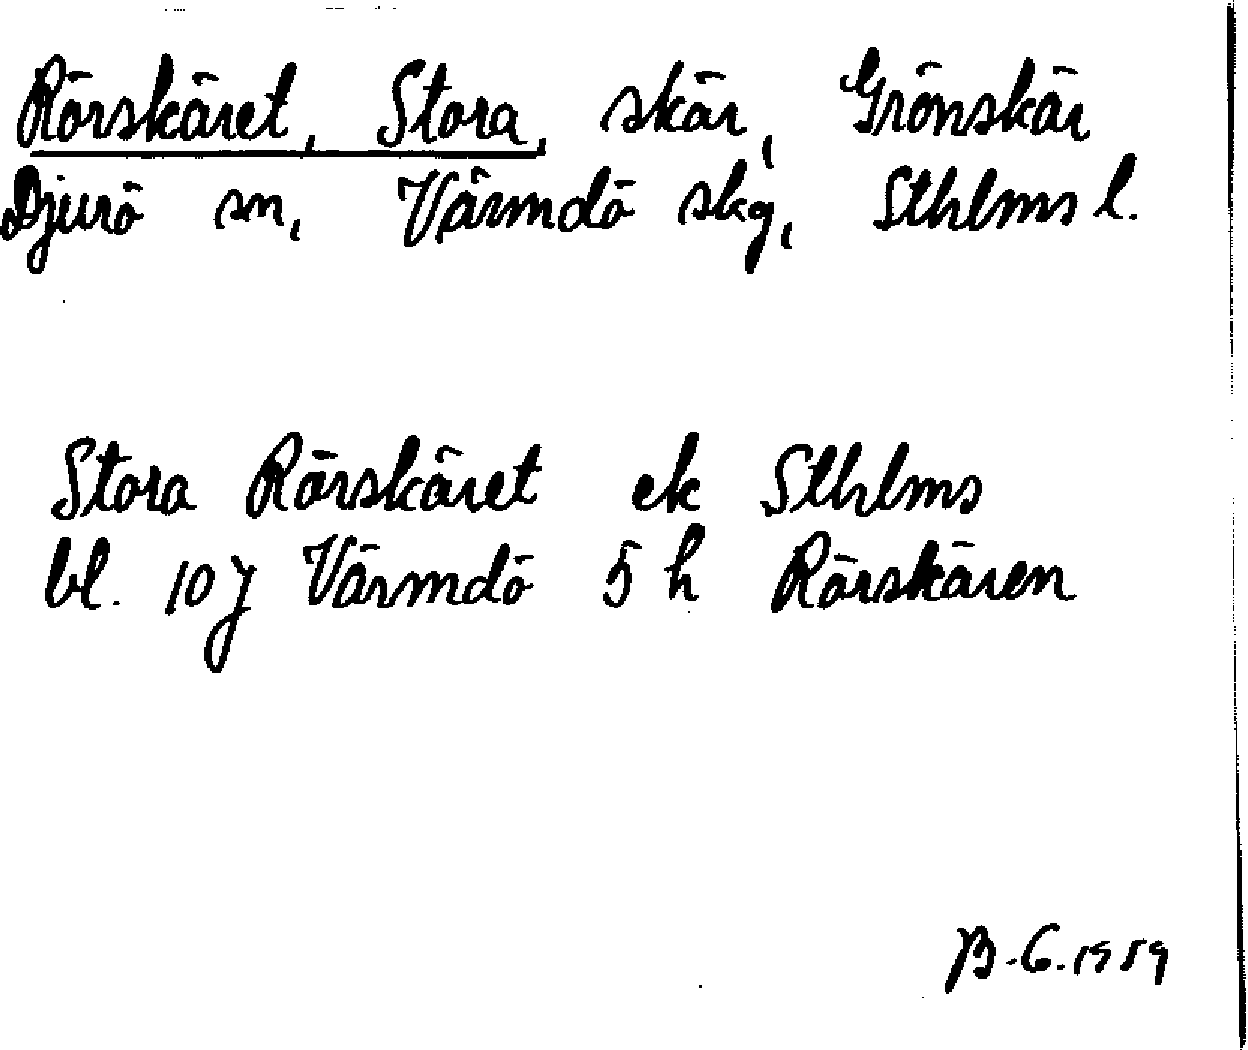 Rörskäret, Stora, skär, Grönskär
Djurö sn, Värmdö skg, Sthlms l.
Stora Rörskäret ek Sthlms
bl. 10 J Värmdö 5 h Rörskären
B.G. 1959